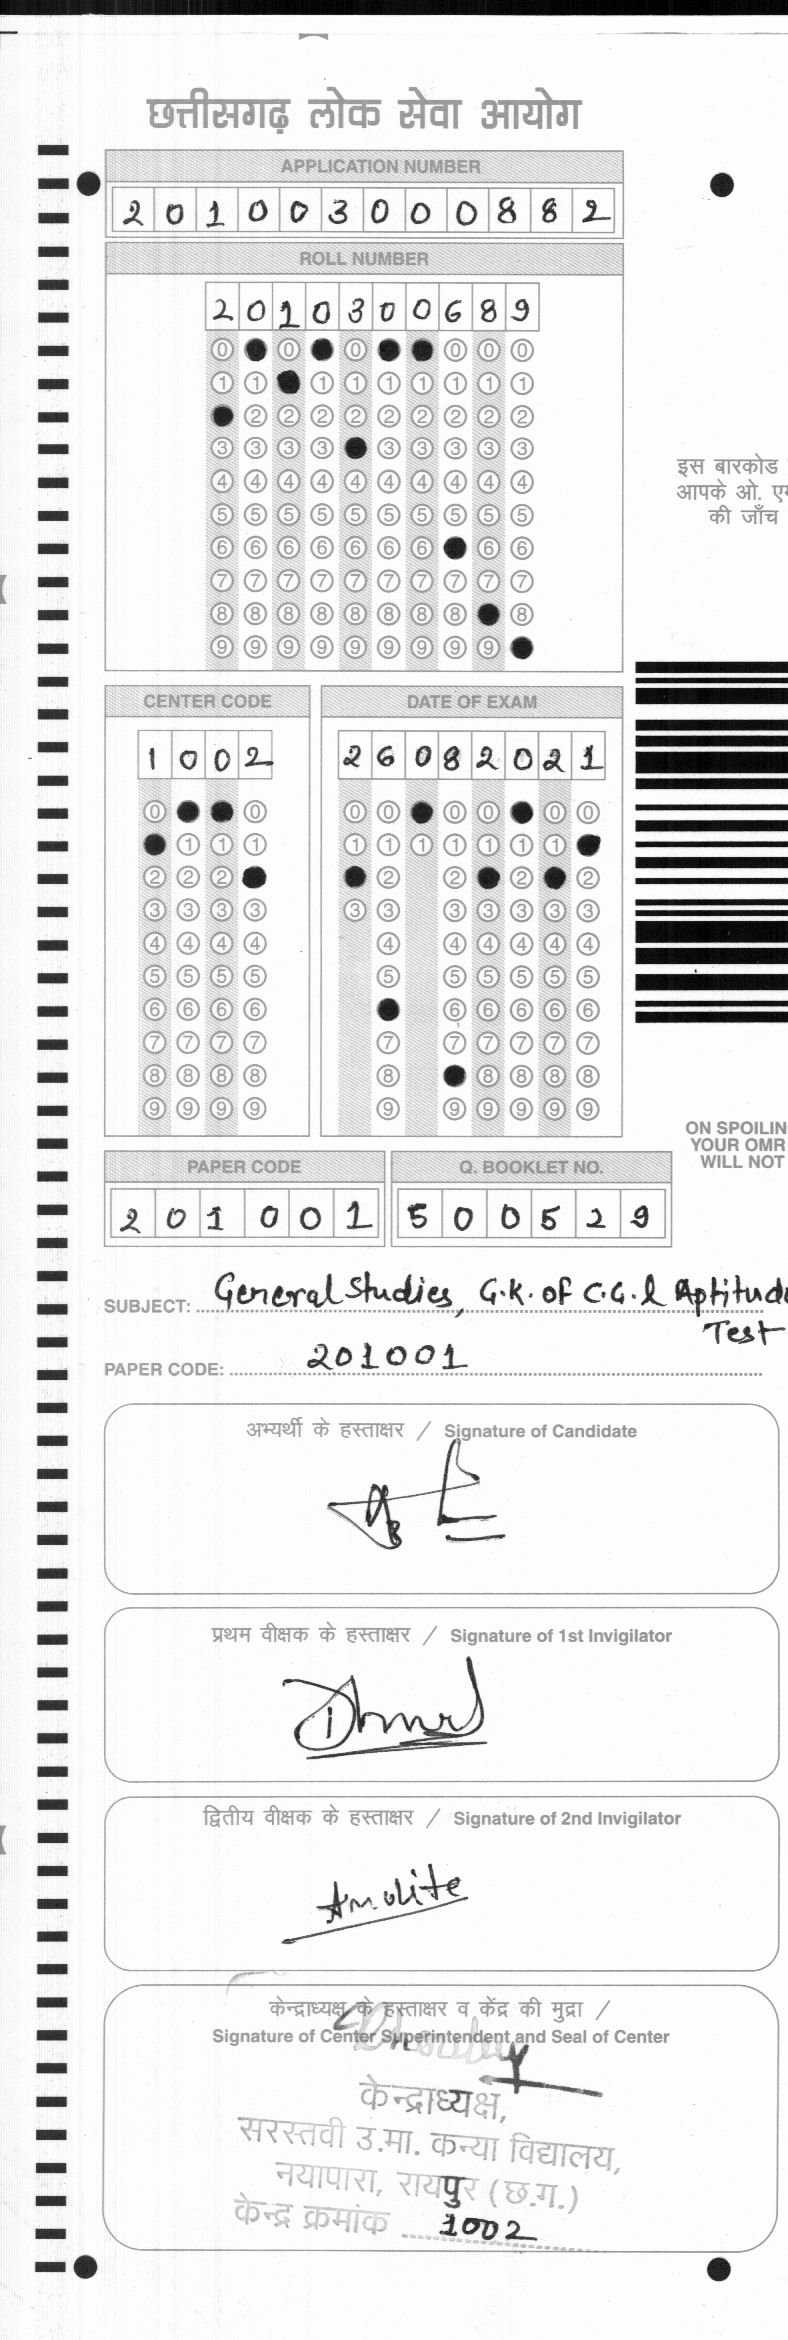 छत्तीसगढ़ लोक सेवा आयोग
APPLICATION NUMBER
2 0 1 0 0 3 0 0 0 8 8 2
ROLL NUMBER
2 0 1 0 3 0 0 6 8 9
0 0 0 0 0 0
1 1 1 1 1 1 1 1 1
2 2 2 2 2 2 2 2 2
3 3 3 3 3 3 3 3 3
4 4 4 4 4 4 4 4 4 4
5 5 5 5 5 5 5 5 5 5
6 6 6 6 6 6 6 6 6
7 7 7 7 7 7 7 7 7 7
8 8 8 8 8 8 8 8 8
9 9 9 9 9 9 9 9 9
इस बारकोड
आपके ओ.
की जाँच
CENTER CODE DATE OF EXAM
1 0 0 2 2 6 0 8 2 0 2 1
0 0 0 0 0 0 0 0
1 1 1 1 1 1 1 1 1 1
2 2 2 2 2 2 2
3 3 3 3 3 3 3 3 3 3
4 4 4 4 4 4 4 4 4 4
5 5 5 5 5 5 5 5 5 5
6 6 6 6 6 6 6 6 6
7 7 7 7 7 7 7 7 7 7
8 8 8 8 8 8 8 8 8
9 9 9 9 9 9 9 9 9 9
ON SPOILIN
YOUR OMR
WILL NOT
PAPER CODE Q. BOOKLET NO.
2 0 1 0 0 1 5 0 0 5 2 9
SUBJECT: General Studies, G.K. of C.G. & Aptitude
Test
PAPER CODE: 201001
अभ्यर्थी के हस्ताक्षर / Signature of Candidate
प्रथम वीक्षक के हस्ताक्षर / Signature of 1st Invigilator
द्वितीय वीक्षक के हस्ताक्षर / Signature of 2nd Invigilator
केन्द्राध्यक्ष के हस्ताक्षर व केंद्र की मुद्रा /
Signature of Center Superintendent and Seal of Center
केन्द्राध्यक्ष,
सरस्तवी उ.मा. कन्या विद्यालय,
नयापारा, रायपुर (छ.ग.)
केन्द्र क्रमांक 1002